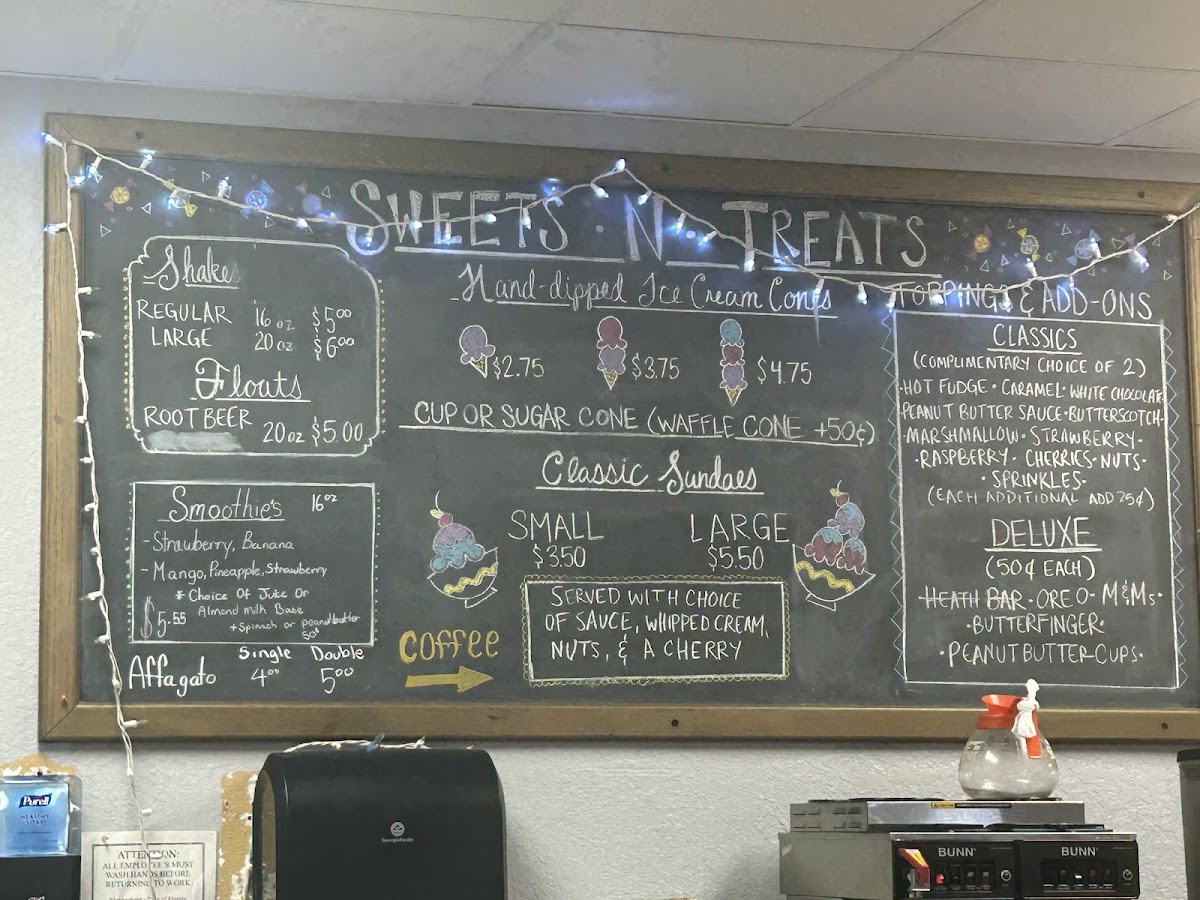 SWEETS · N · TREATS
Shakes
REGULAR 16 oz $5⁰⁰
LARGE 20 oz $6⁰⁰
Floats
ROOT BEER 20 oz $5.00
Smoothie's 16 oz
- Strawberry, Banana
- Mango, Pineapple, Strawberry
* Choice Of Juice Or
Almond milk Base
$5.55 + Spinach or peanutbutter
50¢
Affagato Single 4⁰⁰ Double 5⁰⁰
Hand-dipped Ice Cream Cones
$2.75 $3.75 $4.75
CUP OR SUGAR CONE (WAFFLE CONE +50¢)
Classic Sundaes
SMALL LARGE
$3.50 $5.50
SERVED WITH CHOICE
OF SAUCE, WHIPPED CREAM,
NUTS, & A CHERRY
COFFEE
TOPPINGS & ADD-ONS
CLASSICS
(COMPLIMENTARY CHOICE OF 2)
·HOT FUDGE · CARAMEL · WHITE CHOCOLATE
PEANUT BUTTER SAUCE · BUTTERSCOTCH·
·MARSHMALLOW · STRAWBERRY·
·RASPBERRY · CHERRIES · NUTS·
·SPRINKLES·
(EACH ADDITIONAL ADD 25¢)
DELUXE
(50¢ EACH)
·HEATH BAR · OREO · M&Ms·
·BUTTERFINGER·
·PEANUT BUTTER CUPS·
Purell
HEALTHY
SOAP
ATTENTION:
ALL EMPLOYEE'S MUST
WASH HANDS BEFORE
RETURNING TO WORK
Georgia-Pacific
BUNN BUNN